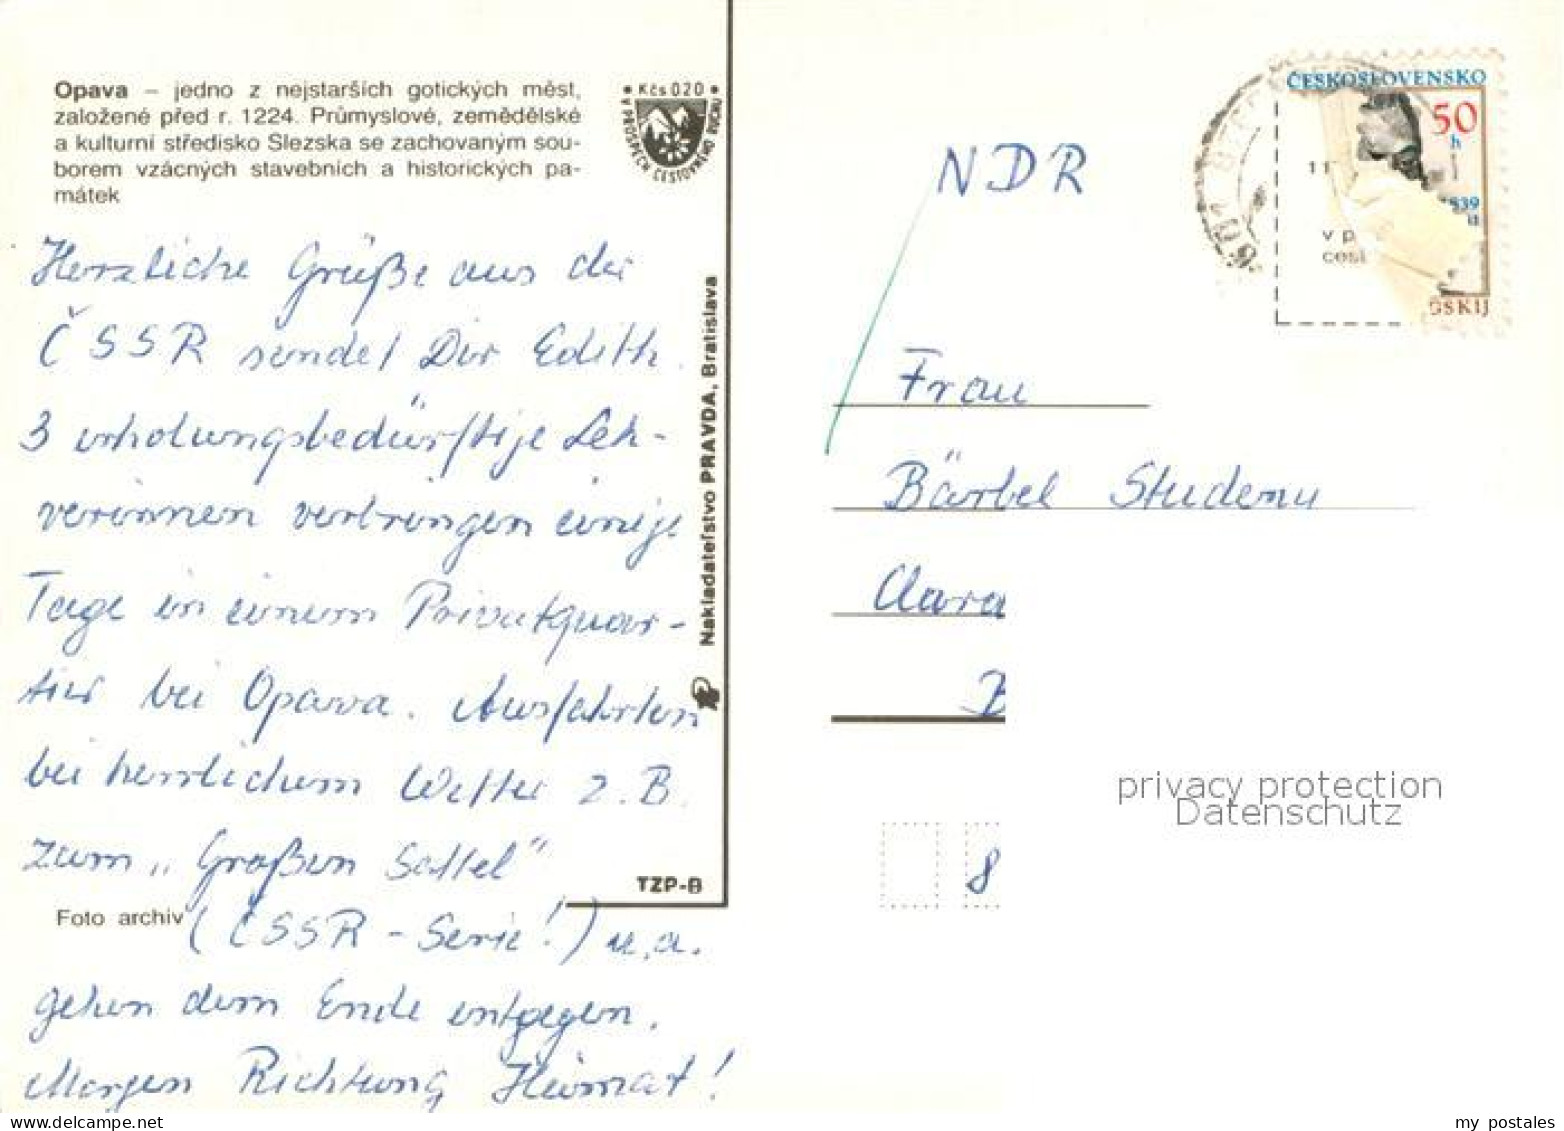 Opava – jedno z nejstarších gotických měst,
založené před r. 1224. Průmyslové, zemědělské
a kulturní středisko Slezska se zachovaným sou-
borem vzácných stavebních a historických pa-
mátek
• Kčs 0.20 •
V PROSPĚCH CESTOVNÍHO RUCHU
Herzliche Grüße aus der
ČSSR sendet Dir Edith.
3 erholungsbedürftige Leh-
rerinnen verbringen einige
Tage in einem Privatquar-
tier bei Opava. Ausfahrten
bei herrlichem Wetter z. B.
zum „Großen Sattel"
(ČSSR - Serie!) u. a.
gehen dem Ende entgegen.
Morgen Richtung Heimat!
Foto archiv
TZP-B
Nakladateľstvo PRAVDA, Bratislava
ČESKOSLOVENSKO
50
h
1839
GSKIJ
11
v p
cest
NDR
Frau
Bärbel Studemu
Clara
B
8
privacy protection
Datenschutz
www.delcampe.net
my postales